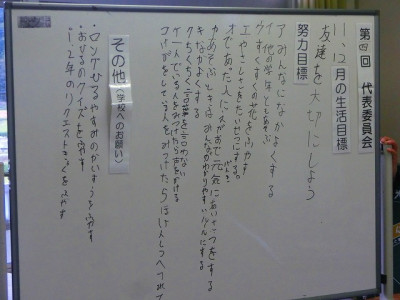 第四回　代表委員会
11、12月の生活目標
友達を大切にしよう
努力目標
ア みんなになかよくする
イ 他の学年としあそぶ
ウ すくすくの花をふやす
エ やさしさをたいせつにする。
オ であった人にえがおで元気にあいさつをする
カ あそぶときはみんながわかりやすいルールにする
キ なかよくする
ク ちくちく言葉を言わない
ケ 一人でいる人をみつけたら声をかける
コ けがをしている人をみつけたらほけんしつへつれて
その他（学校へのお願い）
・ロングひるやすみのかいすうをふやす
・おひるのクイズをふやす
・1、2年のリクエストきょくをふやす